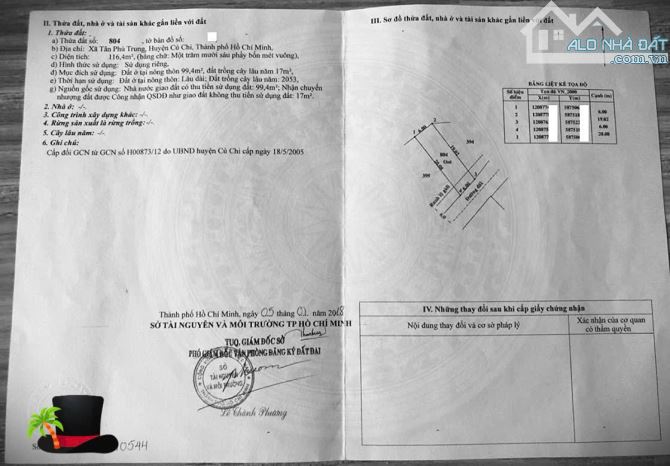 II. Thửa đất, nhà ở và tài sản khác gắn liền với đất
1. Thửa đất:
a) Thửa đất số: 804 , tờ bản đồ số:
b) Địa chỉ: Xã Tân Phú Trung, Huyện Củ Chi, Thành phố Hồ Chí Minh,
c) Diện tích: 116,4m², (bằng chữ: Một trăm mười sáu phẩy bốn mét vuông),
d) Hình thức sử dụng: Sử dụng riêng,
đ) Mục đích sử dụng: Đất ở tại nông thôn 99,4m², đất trồng cây lâu năm 17m²,
e) Thời hạn sử dụng: Đất ở tại nông thôn: Lâu dài; Đất trồng cây lâu năm: 2053,
g) Nguồn gốc sử dụng: Nhà nước giao đất có thu tiền sử dụng đất: 99,4m²; Nhận chuyển
nhượng đất được Công nhận QSDĐ như giao đất không thu tiền sử dụng đất: 17m².
2. Nhà ở: -/-
3. Công trình xây dựng khác: -/-
4. Rừng sản xuất là rừng trồng: -/-
5. Cây lâu năm: -/-
6. Ghi chú:
Cấp đổi GCN từ GCN số H00873/12 do UBND huyện Củ Chi cấp ngày 18/5/2005
Thành phố Hồ Chí Minh, ngày 05 tháng 01 năm 2018
SỞ TÀI NGUYÊN VÀ MÔI TRƯỜNG TP HỒ CHÍ MINH
TUQ. GIÁM ĐỐC SỞ
PHÓ GIÁM ĐỐC VĂN PHÒNG ĐĂNG KÝ ĐẤT ĐAI
SỞ
TÀI NGUYÊN
VÀ MÔI TRƯỜNG
Lê Thành Phương
0544
III. Sơ đồ thửa đất, nhà ở và tài sản khác gắn liền với đất
ALO NHÀ ĐẤT
.com.vn
BẢNG LIỆT KÊ TỌA ĐỘ
Số hiệu điểm
Tọa độ VN_2000
Cạnh (m)
X(m) Y(m)
1
2
3
4
1
6.00
19.02
6.00
20.00
804
394
394
394
Ranh lộ giới
Đường đất
IV. Những thay đổi sau khi cấp giấy chứng nhận
Nội dung thay đổi và cơ sở pháp lý
Xác nhận của cơ quan
có thẩm quyền